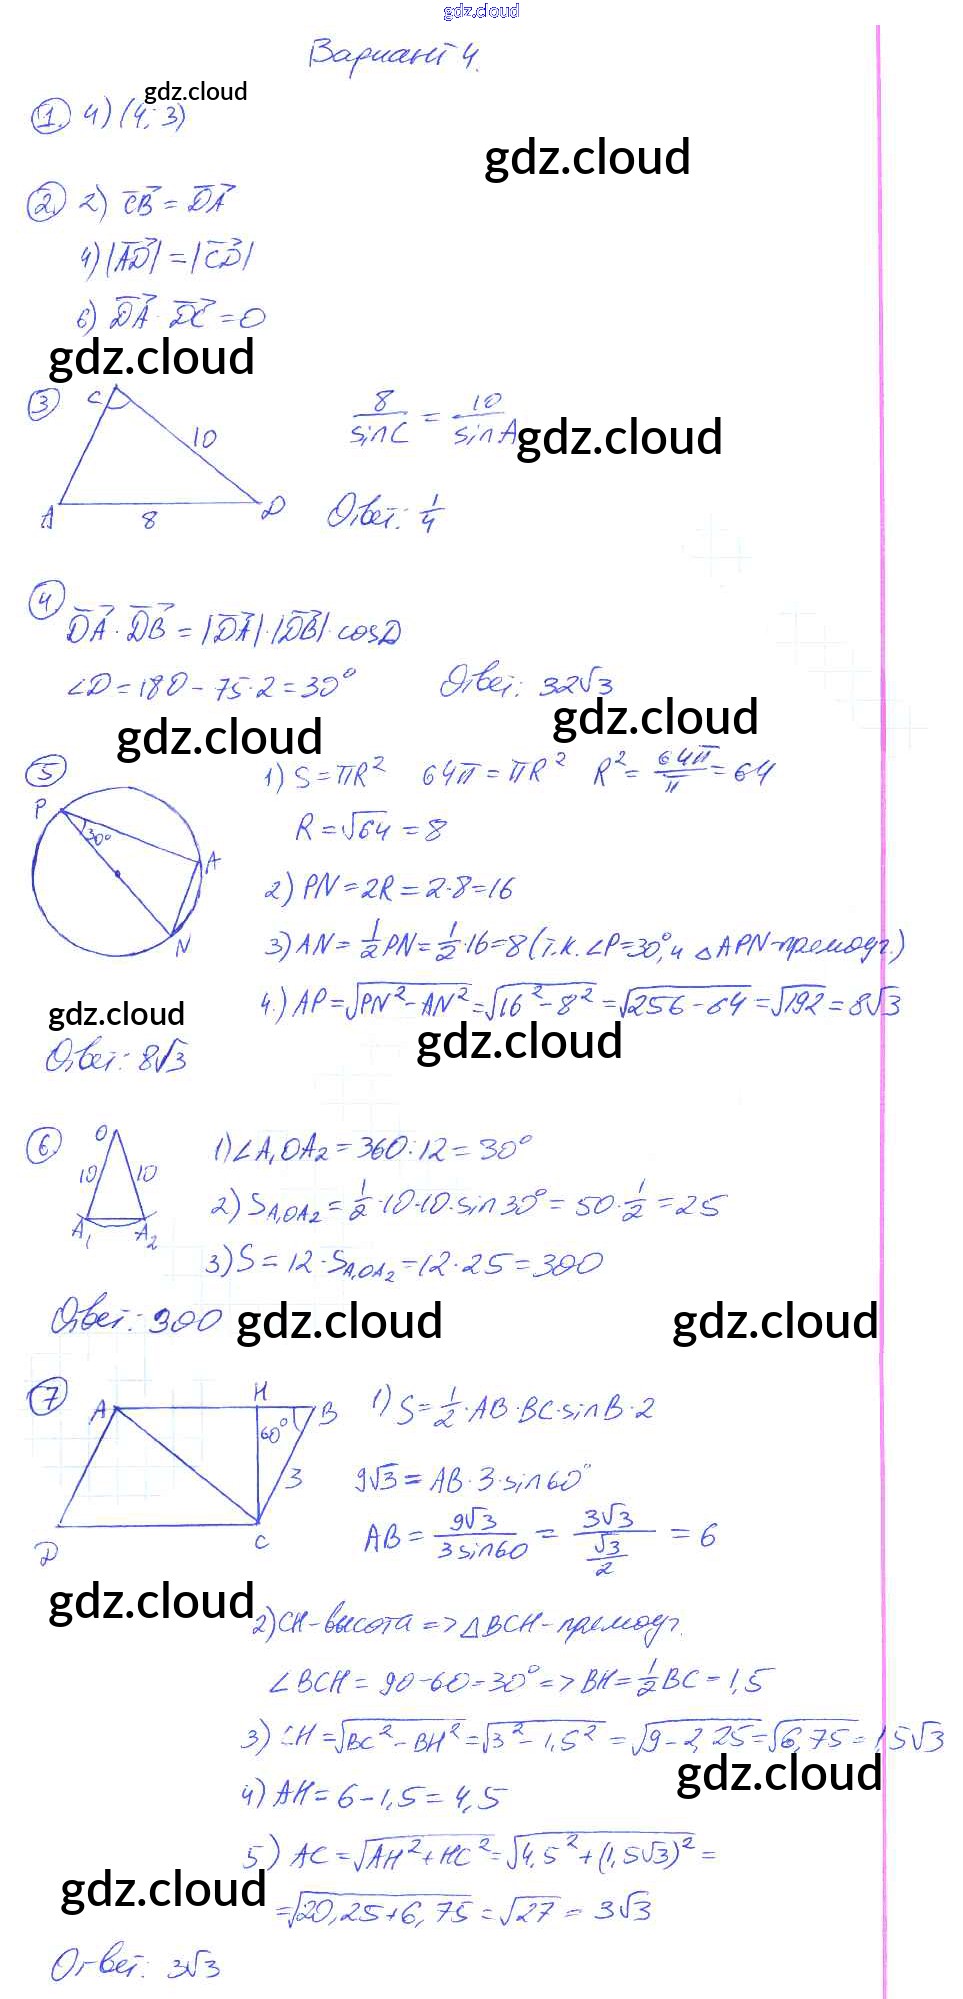 gdz.cloud
Вариант 4.
gdz.cloud
1. 4) (4; 3)
gdz.cloud
2. 2) CB = DA
4) |AD| = |CD|
6) DA · DC = 0
gdz.cloud
3
C
10
A
8
D
8/sinC = 10/sinA
gdz.cloud
Ответ: 1/4
4
DA · DB = |DA| · |DB| · cosD
∠D = 180 - 75 · 2 = 30°
Ответ: 32√3
gdz.cloud
gdz.cloud
5
P
30°
A
N
1) S = πR² 64π = πR² R² = 64π/π = 64
R = √64 = 8
2) PN = 2R = 2·8 = 16
3) AN = 1/2 PN = 1/2 · 16 = 8 (т.к. ∠P = 30°, и △APN - прямоуг.)
4.) AP = √(PN² - AN²) = √(16² - 8²) = √(256 - 64) = √192 = 8√3
gdz.cloud
gdz.cloud
Ответ: 8√3
6.
O
10
10
A₁
A₂
1) ∠A₁OA₂ = 360 : 12 = 30°
2) S A₁OA₂ = 1/2 · 10 · 10 · sin30° = 50 · 1/2 = 25
3) S = 12 · S A₁OA₂ = 12 · 25 = 300
Ответ: 300
gdz.cloud
gdz.cloud
7
A
H
B
60°
3
D
C
1) S = 1/2 · AB · BC · sinB · 2
9√3 = AB · 3 · sin60°
AB = 9√3/3sin60 = 3√3/(√3/2) = 6
gdz.cloud
2) CH - высота => △BCH - прямоуг.
∠BCH = 90 - 60 = 30° => BH = 1/2 BC = 1,5
3) CH = √(BC² - BH²) = √(3² - 1,5²) = √(9 - 2,25) = √6,75 = 1,5√3
gdz.cloud
4) AH = 6 - 1,5 = 4,5
5) AC = √(AH² + HC²) = √(4,5² + (1,5√3)²) =
gdz.cloud
= √(20,25 + 6,75) = √27 = 3√3
Ответ: 3√3